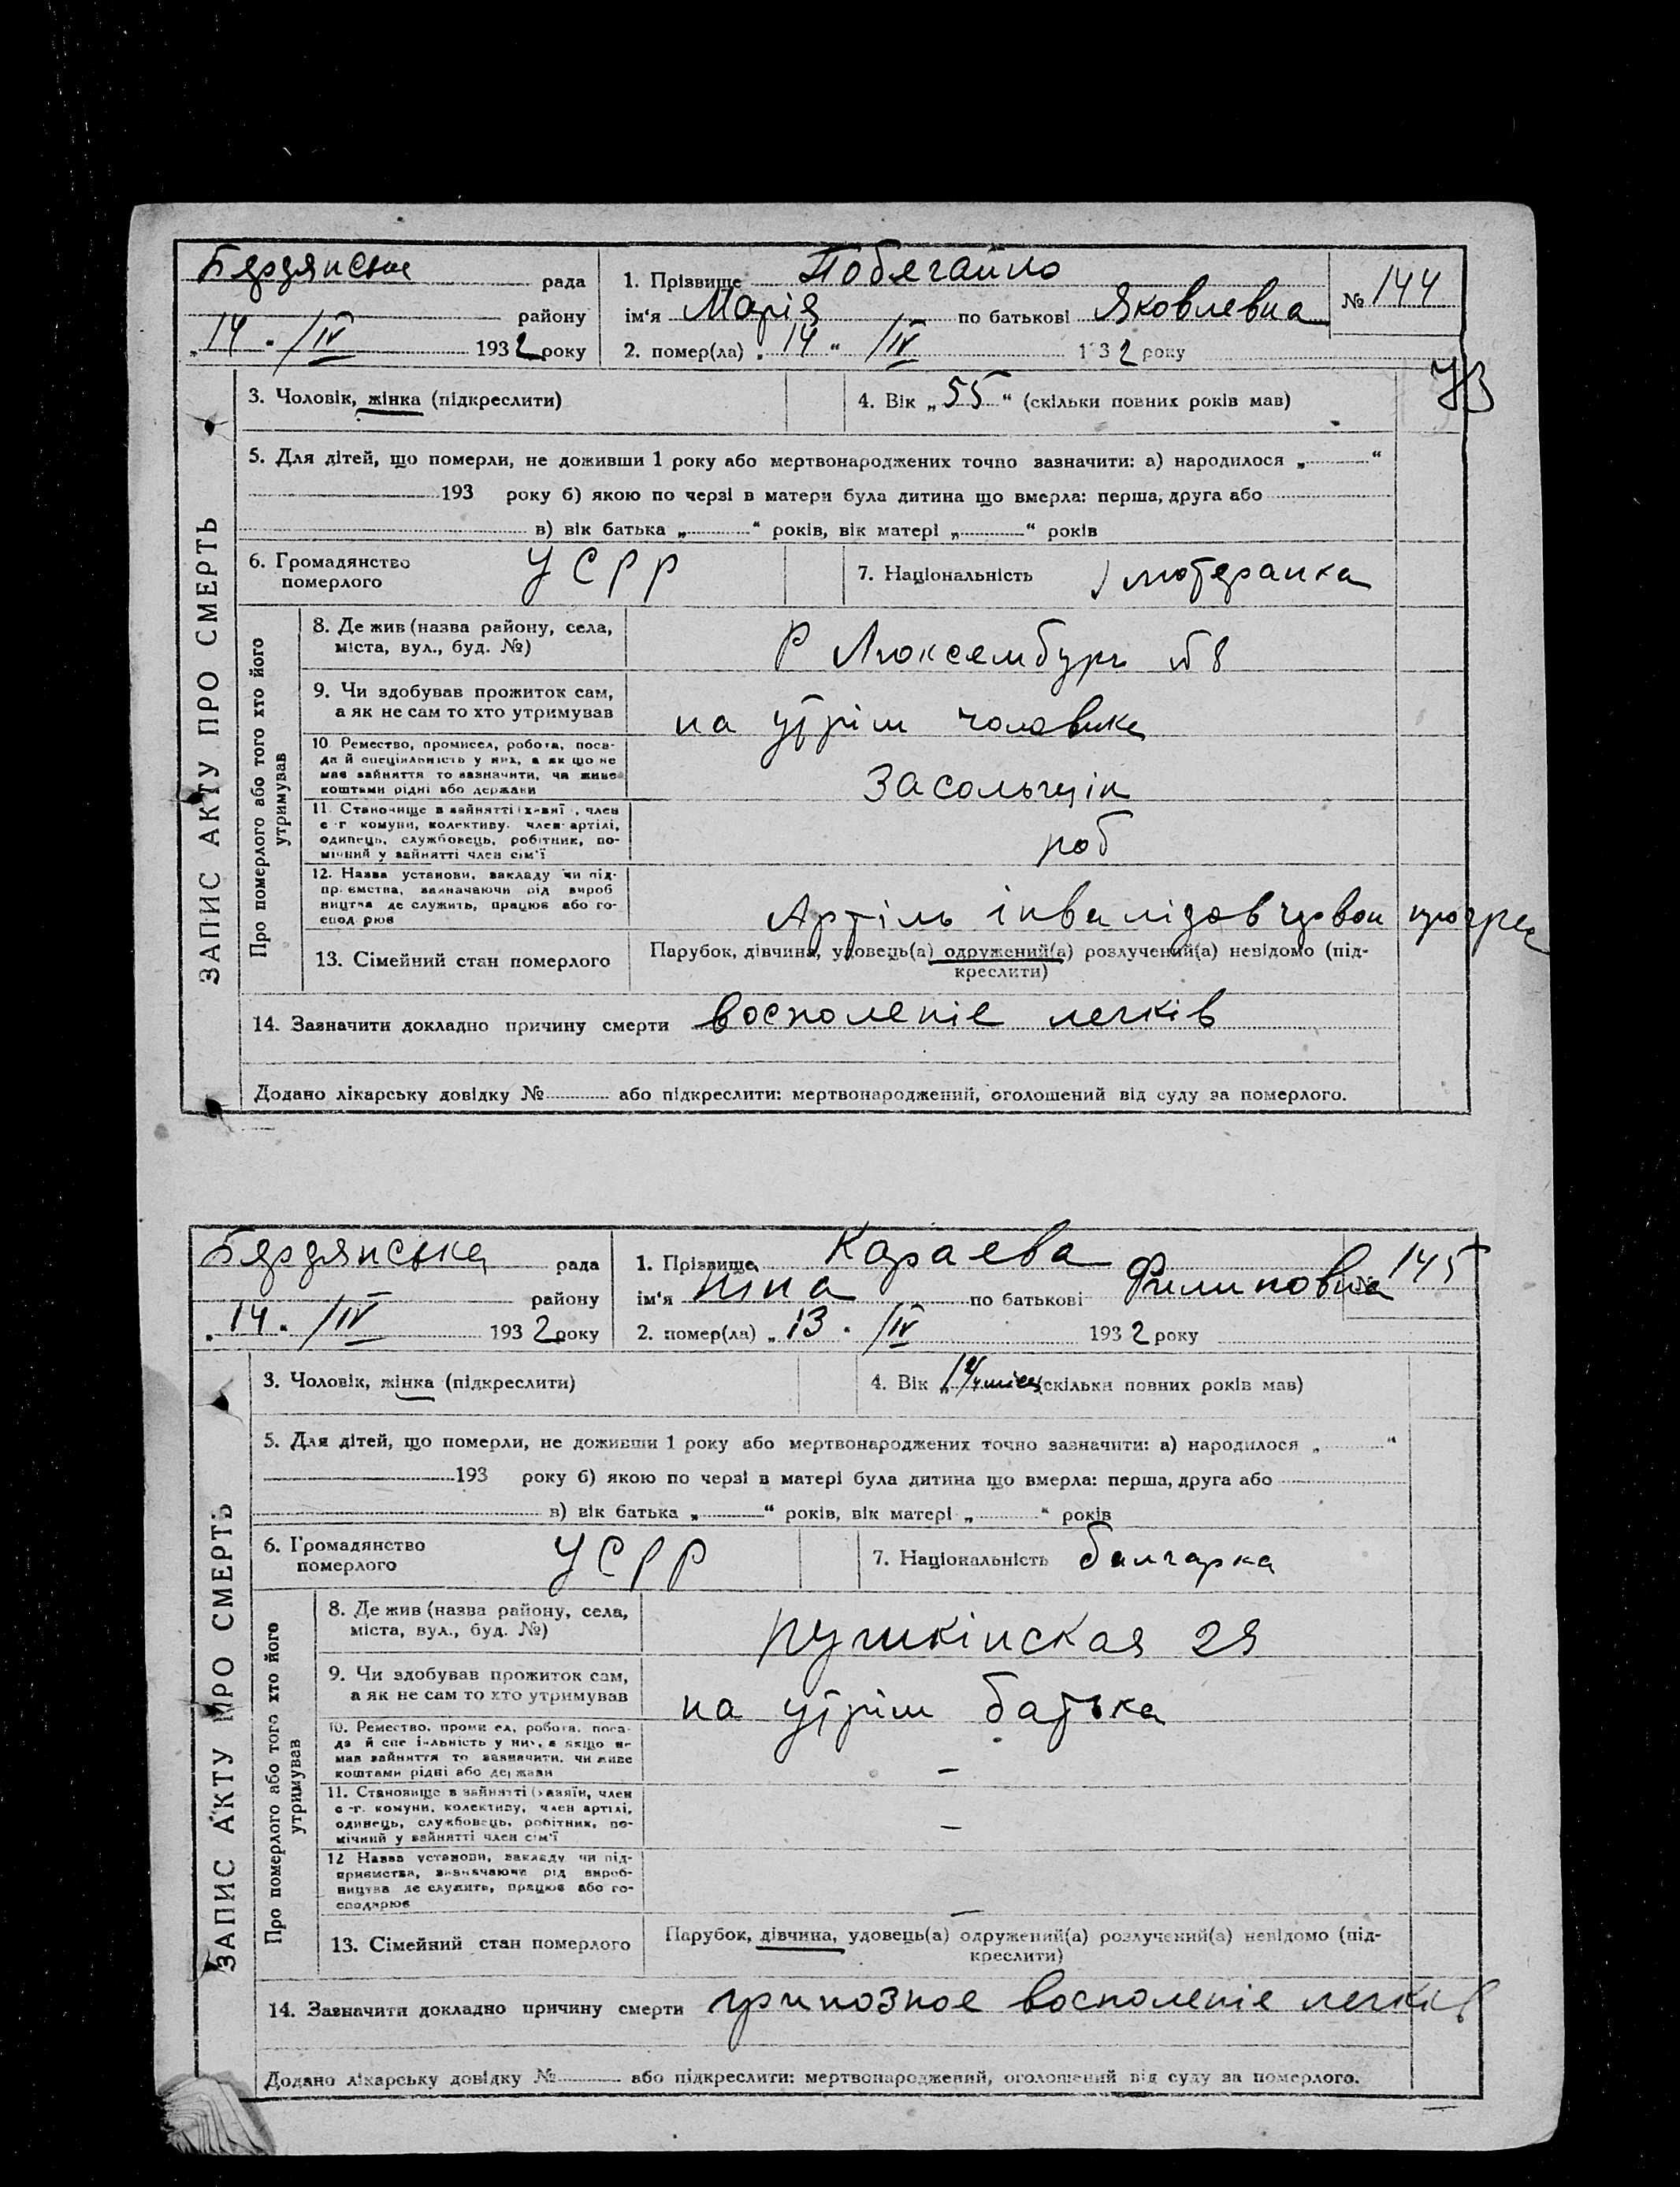 Бердянська рада
району
„14“ /IV 1932 року
1. Прізвище Побегайло
ім'я Марія по батькові Яковлевна
№ 144
2. помер(ла) „14“ /IV 1932 року
ЗАПИС АКТУ ПРО СМЕРТЬ
3. Чоловік, жінка (підкреслити)
4. Вік „55“ (скільки повних років мав)
5. Для дітей, що померли, не доживши 1 року або мертвонароджених точно зазначити: а) народилося „ “
193 року б) якою по черзі в матери була дитина що вмерла: перша, друга або
в) вік батька „ “ років, вік матері „ “ років
6. Громадянство
померлого
УСРР
7. Національність лютеранка
Про померлого або того хто його
утримував
8. Де жив (назва району, села,
міста, вул., буд. №)
Р Люксембург 8
9. Чи здобував прожиток сам,
а як не сам то хто утримував
на утрім чоловика
10. Ремество, промисел, робота, поса-
да й спеціяльність у них, а як що не
має зайняття то зазначити, чи живе
коштами рідні або держави
Засольщік
11. Становище в зайнятті (хазяї, член
с-г комуни, колективу, член артілі,
одинець, службовець, робітник, по-
мічний у зайнятті член сім'ї
роб
12. Назва установи, закладу чи під-
приємства, зазначаючи рід вироб
ництва де служить, працює або го-
сподарює
Артіль інвалідов
13. Сімейний стан померлого
Парубок, дівчина, удовець(а) одружений(а) розлучений(а) невідомо (під-
креслити)
14. Зазначити докладно причину смерти восполеніе легків
Додано лікарську довідку № або підкреслити: мертвонароджений, оголошений від суду за померлого.
Бердянська рада
району
„14“ /IV 1932 року
1. Прізвище Караева
ім'я Ніна по батькові Филиповна
145
2. помер(ла) „13“ /IV 1932 року
ЗАПИС АКТУ ПРО СМЕРТЬ
3. Чоловік, жінка (підкреслити)
4. Вік (скільки повних років мав)
5. Для дітей, що померли, не доживши 1 року або мертвонароджених точно зазначити: а) народилося „ “
193 року б) якою по черзі в матері була дитина що вмерла: перша, друга або
в) вік батька „ “ років, вік матері „ “ років
6. Громадянство
померлого
УСРР
7. Національність балгарка
Про померлого або того хто його
утримував
8. Де жив (назва району, села,
міста, вул., буд. №)
пушкінская 29
9. Чи здобував прожиток сам,
а як не сам то хто утримував
на утрім батька
10. Ремество, промисел, робота, поса-
да й спеціяльність у них, а якщо не
мав зайняття то зазначити, чи живе
коштами рідні або держави
–
11. Становище в зайнятті (хазяїн, член
с-г. комуни, колективу, член артілі,
одинець, службовець, робітник, по-
мічний у зайнятті член сім'ї
–
12 Назва установи, закладу чи під-
приємства, зазначаючи рід вироб-
ництва де служить, працює або го-
сподарює
–
13. Сімейний стан померлого
Парубок, дівчина, удовець(а) одружений(а) розлучений(а) невідомо (під-
креслити)
14. Зазначити докладно причину смерти грипозное восполеніе легків
Додано лікарську довідку № або підкреслити: мертвонароджений, оголошений від суду за померлого.